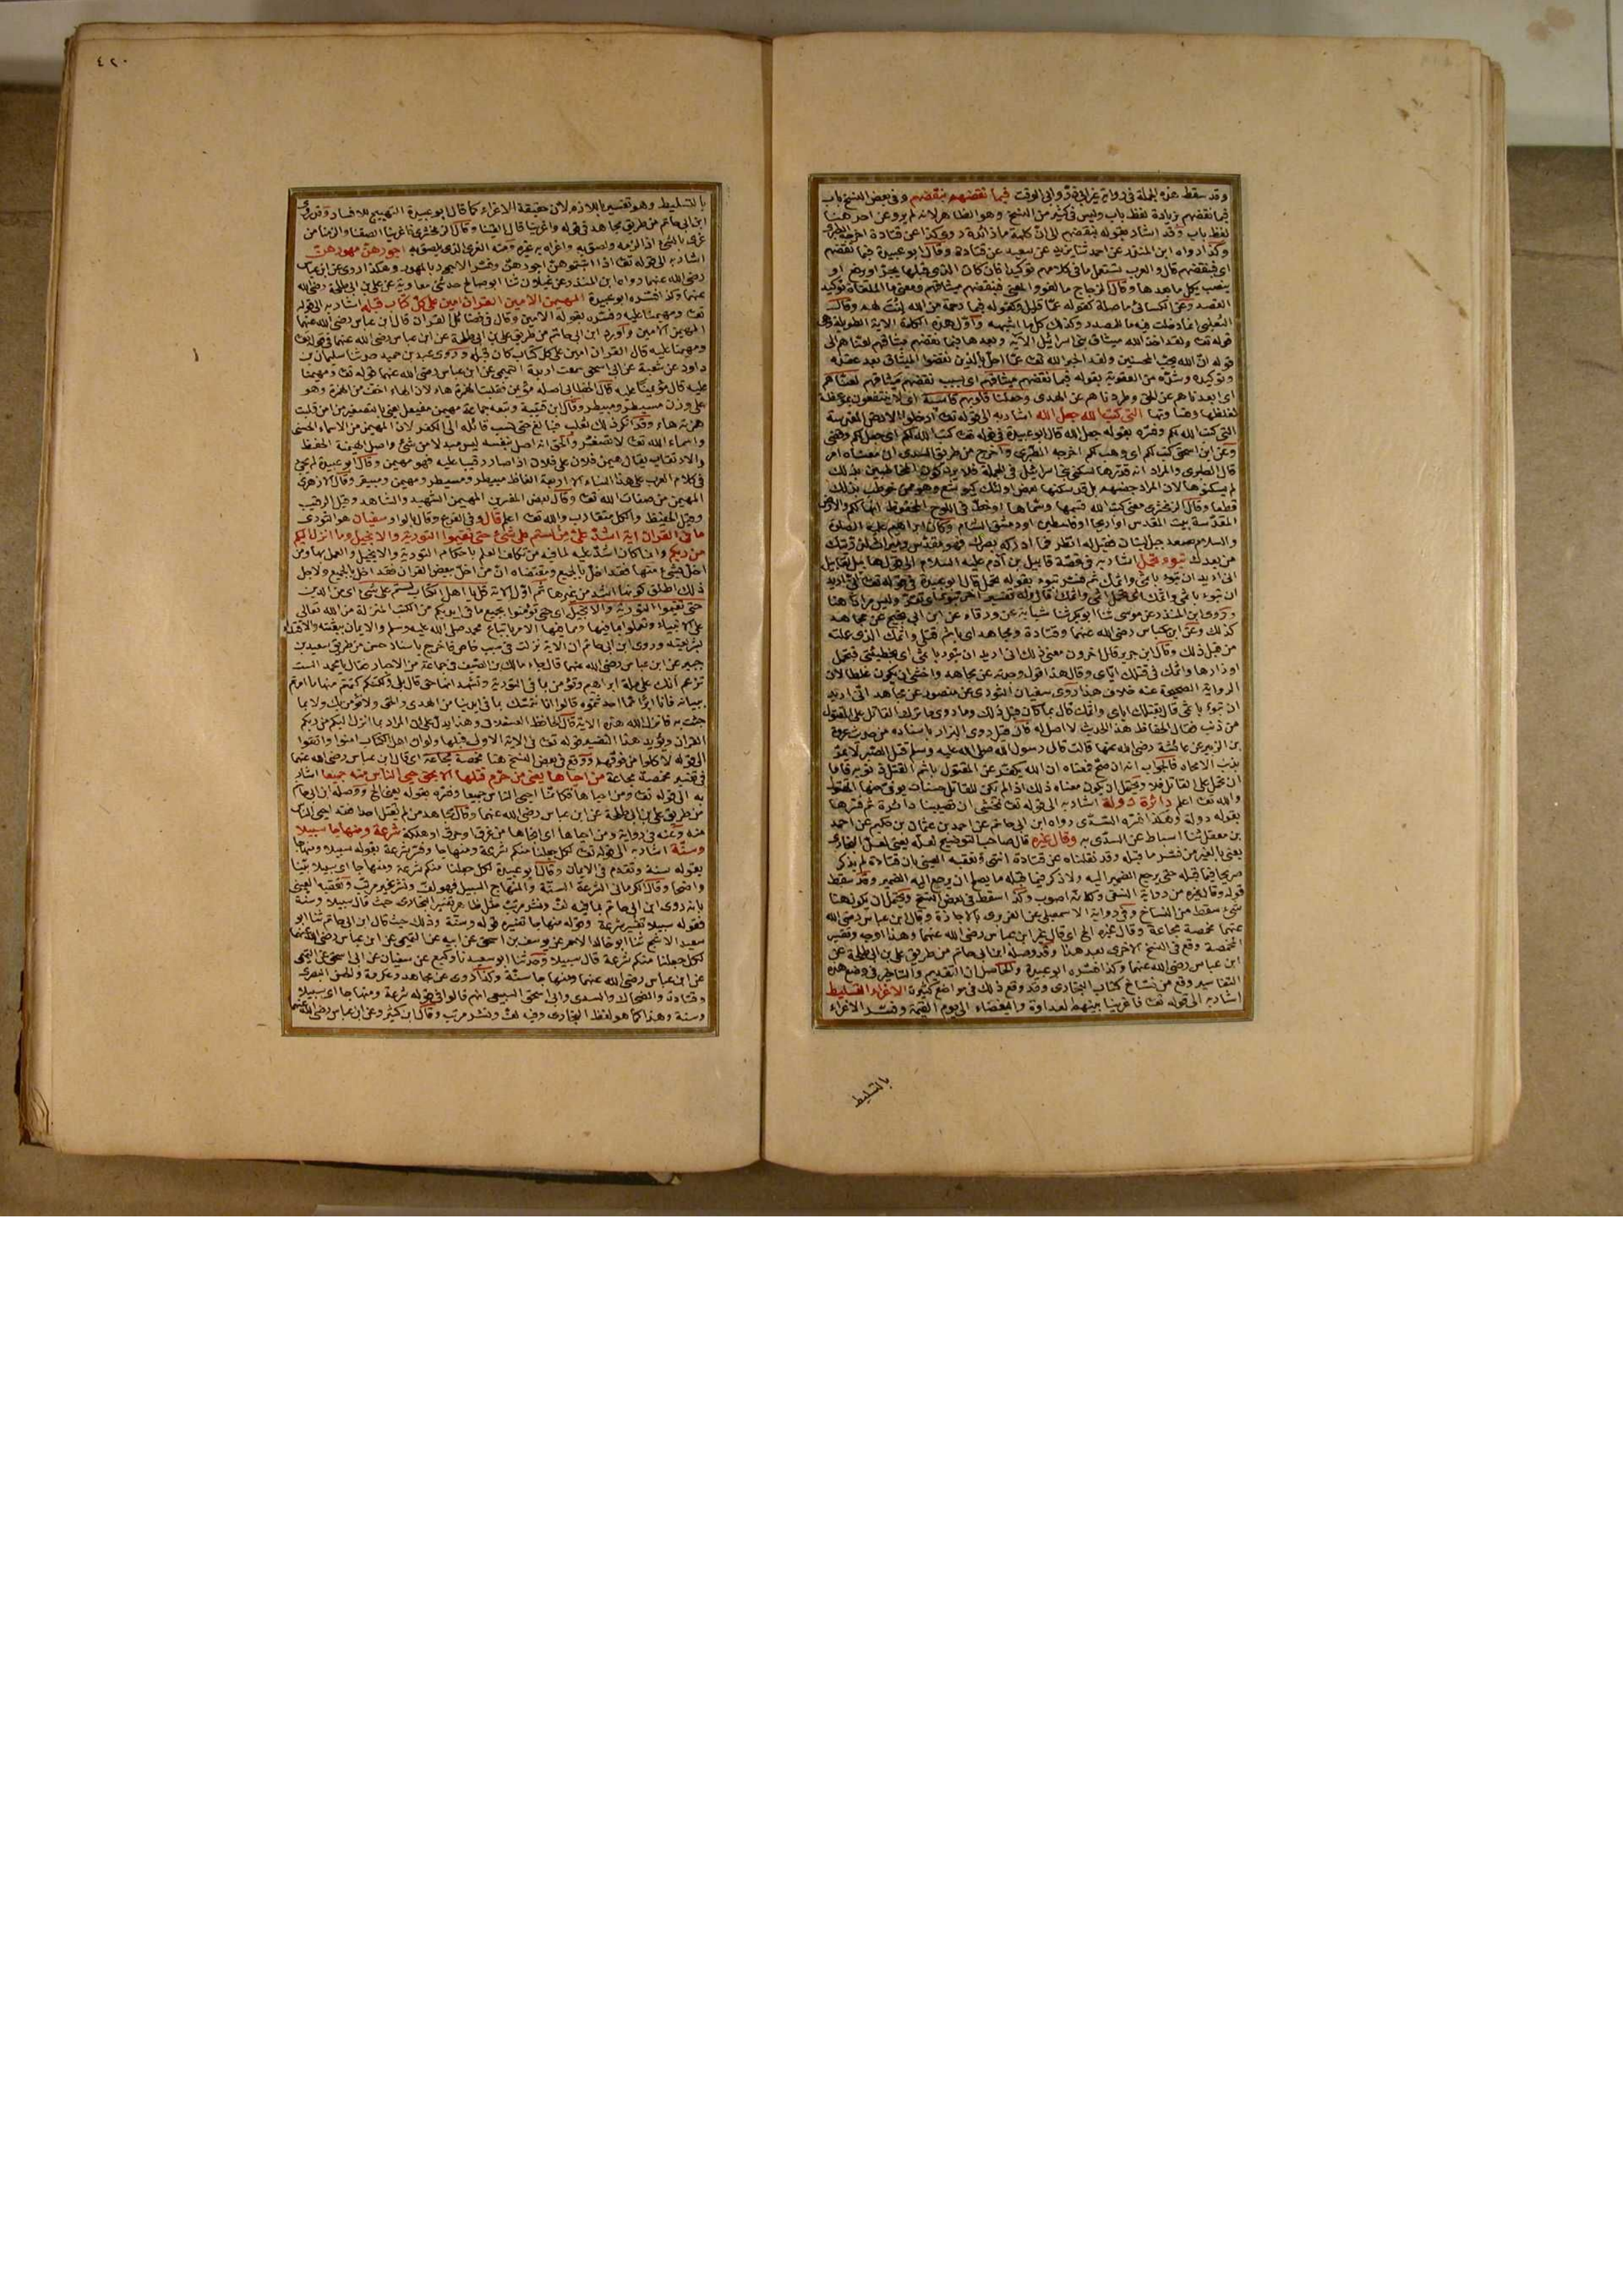 وقد سقط هذه الجملة في رواية غير ابي ذر وابي الوقت فبما نقضهم بنقضهم وفي بعض النسخ باب
فبما نقضهم بزيادة لفظ باب وليس في كثير من النسخ وهو الظاهر لانه لم يرو عن احد هنا
لفظ باب وقد اشار بقوله فبنقضهم الى ان كلمة ما زائدة روى كذا عن قتادة اخرجه الطبري
وكذا رواه ابن المنذر عن احمد ثنا يزيد عن سعيد عن قتادة وقال ابو عبيدة فبما نقضهم
اي فبنقضهم قال والعرب تستعمل ما في كلامهم توكيدا فان كان الذي قبلها يجر او يرفع او
ينصب عمل ما بعدها وقال الزجاج ما لغو والمعنى فبنقضهم ميثاقهم ومعنى ما الملغاة توكيد
القصة وعن الكسائي ما صلة كقوله عما قليل وكقوله فبما رحمة من الله لنت لهم وقال
الثعلبي انما دخلت فيه ما للمصدر وكذلك كل ما اشبهه واول هذه الكلمة الاية الطويلة وهي
قوله تعا ولقد اخذ الله ميثاق بني اسرائيل الآية وبعدها فبما نقضهم ميثاقهم لعناهم الى
قوله ان الله يحب المحسنين ولقد اخبر الله تعا عما احل بالذين نقضوا الميثاق بعد عقده
وتوكيده وشده من العقوبة بقوله فبما نقضهم ميثاقهم اي بسبب نقضهم ميثاقهم لعناهم
اي ابعدناهم عن الحق وطردناهم عن الهدى وجعلنا قلوبهم قاسية اي لا ينتفعون بموعظة
لغلظها وقساوتها التي كتب الله جعل الله اشار به الى قوله تعا ادخلوا الارض المقدسة
التي كتب الله لكم وفسره بقوله جعل الله قال ابو عبيدة في قوله تعا كتب الله لكم اي جعل لكم وقضى
وعن ابن اسحق كتب لكم اي وهب لكم اخرجه الطبري واخرج من طريق السدي ان معناه امر
قال الطبري والمراد انه قدرها لسكنى بني اسرائيل في الجملة فلا يرد كون المخاطبين بذلك
لم يسكنوها لان المراد جنسهم بل قد سكنها بعض اولئك كيوشع وهو ممن خوطب بذلك
قطعا وقال الزمخشري معنى كتب الله قسمها وسماها او خط في اللوح المحفوظ انها لكم والارض
المقدسة بيت المقدس او اريحا او فلسطين او دمشق الشام وكان ابراهيم عليه الصلوة
والسلام يصعد جبل لبنان فقيل له انظر فما ادركه بصرك فهو مقدس وميراث لذريتك
من بعدك تبوء تحمل اشار به في قصة قابيل بن آدم عليه السلام الى قول هابيل لقابيل
اني اريد ان تبوء باثمي واثمك ثم فسر تبوء بقوله تحمل قال ابو عبيدة في قوله تعا اني اريد
ان تبوء باثمي واثمك اي تحمل اثمي واثمك قال وله تفسير اخر تبوء اي تقر وليس مرادا هنا
وروى ابن المنذر عن موسى ثنا ابو بكر ثنا شبابة عن ورقاء عن ابن ابي نجيح عن مجاهد
كذلك وعن ابن عباس رضي الله عنهما وقتادة ومجاهد اي باثم قتلي واثمك الذي عملته
من قبل ذلك وقال ابن جرير قال اخرون معنى ذلك اني اريد ان تبوء باثمي اي بخطيئتي فتحمل
اوزارها واثمك في قتلك اياي وقال هذا قول وجدته عن مجاهد واخشى ان يكون غلطا لان
الرواية الصحيحة عنه خلاف هذا روى سفيان الثوري عن منصور عن مجاهد اني اريد
ان تبوء باثمي قال بقتلك اياي واثمك قال بما كان قبل ذلك وما روى ما ترك القاتل على المقتول
من ذنب فقال الحفاظ هذا الحديث لا اصل له قال قيل روى البزار باسناده من حديث عروة
بن الزبير عن عائشة رضي الله عنها قالت قال رسول الله صلى الله عليه وسلم قتل الصبر لا يمر
بذنب الا محاه فالجواب انه ان صح فمعناه ان الله يكفر عن المقتول بالم القتل ذنوبه فاما
ان تحمل على القاتل فلا ويحتمل ان يكون معناه ذلك اذا لم تكن للقاتل حسنات يوفى منها المقتول
والله تعا اعلم دائرة دولة اشار به الى قوله تعا نخشى ان تصيبنا دائرة ثم فسرها
بقوله دولة وهكذا فسره السدي رواه ابن ابي حاتم عن احمد بن عثمان بن حكيم عن احمد
بن مفضل ثنا اسباط عن السدي به وقال غيره قال صاحب التوضيح لعله يعني لعل البخاري
يعني بالغير من فسر ما قبله وقد نقلناه عن قتادة انتهى وتعقبه العيني بان قتادة لم يذكر
صريحا فيما قبله حتى يرجع الضمير اليه ولا ذكر فيما قبله ما يصلح ان يرجع اليه الضمير وقد سقط
قوله وقال غيره من رواية النسفي وكانه اصوب وكذا اسقط في بعض النسخ ويحتمل ان يكون هنا
شيء سقط من النساخ وفي رواية الاسمعيلي عن الفربري بالاجازة وقال ابن عباس رضي الله
عنهما مخمصة مجاعة وقال غيره الخ اي قال غير ابن عباس رضي الله عنهما وهذا اوجه وتفسير
المخمصة وقع في النسخ الاخرى بعد هذا وقد وصله ابن ابي حاتم من طريق علي بن ابي طلحة عن
ابن عباس رضي الله عنهما وكذا فسره ابو عبيدة والحاصل ان التقديم والتاخير في وضع هذه
التفاسير وقع من نساخ كتاب البخاري وقد وقع ذلك في مواضع كثيرة الاغراء التسليط
اشار به الى قوله تعا فاغرينا بينهم العداوة والبغضاء الى يوم القيمة وفسر الاغراء
بالتسليط
٤٢٠
بالتسليط وهو تفسير باللازم لان حقيقة الاغراء كما قال ابو عبيدة التهييج للافساد وقد روى
ابن ابي حاتم من طريق مجاهد في قوله واغرينا قال القينا وقال الزمخشري فاغرينا الصقنا والزمنا من
غرى بالشئ اذا الزمه ولصق به واغراه به غيره ومنه الغرى الذي يلصق به اجورهن مهورهن
اشار به الى قوله تعا اذا اتيتموهن اجورهن وفسر الاجور بالمهور وهكذا روى عن ابن عباس
رضي الله عنهما رواه ابن المنذر عن غيلان ثنا ابو صالح حدثني معاوية عن علي بن ابي طلحة رضي الله
عنهما وكذا فسره ابو عبيدة المهيمن الامين القران امين على كل كتاب قبله اشار به الى قوله
تعا ومهيمنا عليه وفسره بقوله الامين وقال في فضائل القران قال ابن عباس رضي الله عنهما
المهيمن الامين واورد ابن ابي حاتم من طريق علي بن ابي طلحة عن ابن عباس رضي الله عنهما في قوله تعا
ومهيمنا عليه قال القران امين على كل كتاب كان قبله وروى عبد بن حميد حدثنا سليمان بن
داود عن شعبة عن ابي اسحق سمعت اربدة التميمي عن ابن عباس رضي الله عنهما قوله تعا ومهيمنا
عليه قال مؤتمنا عليه قال الخطابي اصله مؤيمن فقلبت الهمزة هاء لان الهاء اخف من الهمزة وهو
على وزن مسيطر ومبيطر وقال ابن قتيبة وتبعه جماعة مهيمن مفيعل يعني بالتصغير من امن قلبت
همزته هاء وقد انكر ذلك ثعلب فبالغ حتى نسب قائله الى الكفر لان المهيمن من الاسماء الحسنى
واسماء الله تعا لا تصغر والحق انه اصل بنفسه ليس مبدلا من شئ واصل الهيمنة الحفظ
والارتقاب يقال هيمن فلان على فلان اذا صار رقيبا عليه فهو مهيمن وقال ابو عبيدة لم يجئ
في كلام العرب على هذا البناء الا اربعة الفاظ مبيطر ومسيطر ومهيمن ومبيقر وقال الازهري
المهيمن من صفات الله تعا وقال بعض المفسرين المهيمن الشهيد والشاهد وقيل الرقيب
وقيل الحفيظ والكل متقارب والله تعا اعلم قال وفي الفرع وقال بالواو سفيان هو الثوري
ما في القران اية اشد علي من لستم على شئ حتى تقيموا التورية والانجيل وما انزل اليكم
من ربكم وانما كان اشد عليه لما فيه من تكلف العلم باحكام التورية والانجيل والعمل بها ومن
اخل بشئ منها فقد اخل بالجميع ومقتضاه ان من اخل ببعض القران فقد اخل بالجميع ولاجل
ذلك اطلق كونها اشد من غيرها ثم اول الاية قل يا اهل الكتاب لستم على شئ اي من الدين
حتى تقيموا التورية والانجيل اي حتى تؤمنوا بجميع ما في ايديكم من الكتب المنزلة من الله تعالى
على الانبياء وتعملوا بما فيها ومما فيها الامر باتباع محمد صلى الله عليه وسلم والايمان ببعثته والاقتداء
بشريعته وروى ابن ابي حاتم ان الاية نزلت في سبب خاص فاخرج باسناد حسن من طريق سعيد بن
جبير عن ابن عباس رضي الله عنهما قال جاء مالك بن الصيف في جماعة من الاحبار فقال يا محمد الست
تزعم انك على ملة ابراهيم وتؤمن بما في التورية وتشهد انها حق قال بلى ولكنكم كتمتم منها ما امرتم
ببيانه فانا ابرأ مما احدثتموه قالوا انا نتمسك بما في ايدينا من الهدى والحق ولا نؤمن بك ولا بما
جئت به فانزل الله هذه الاية قال الحافظ العسقلاني وهذا يدل على ان المراد بما انزل اليكم من ربكم
القران ويؤيد هذا التفسير قوله تعا في الاية الاولى قبلها ولو ان اهل الكتاب امنوا واتقوا
الى قوله لاكلوا من فوقهم ووقع في بعض النسخ هنا مخمصة مجاعة اي قال ابن عباس رضي الله عنهما
في تفسير مخمصة مجاعة من احياها يعني من حرم قتلها الا بحق حيي الناس منه جميعا اشار
به الى قوله تعا ومن احياها فكانما احيى الناس جميعا وفسره بقوله يعني الخ ووصله ابن ابي حاتم
من طريق علي بن ابي طلحة عن ابن عباس رضي الله عنهما وقال مجاهد من لم يقتل احدا فقد احيى الناس
منه وعنه في رواية ومن احياها اي انجاها من غرق او حرق او هلكة شرعة ومنهاجا سبيلا
وسنة اشار به الى قوله تعا لكل جعلنا منكم شرعة ومنهاجا وفسر شرعة بقوله سبيلا ومنهاجا
بقوله سنة وتقدم في الايمان وقال ابو عبيدة لكل جعلنا منكم شرعة ومنهاجا اي سبيلا بينا
واضحا وقال الكرماني الشرعة السنة والمنهاج السبيل فهو لف ونشر غير مرتب وتعقبه العيني
بانه روى ابن ابي حاتم بما فيه لف ونشر مرتب مثل ظاهر تفسير البخاري حيث قال سبيلا وسنة
فقوله سبيلا تفسير شرعة وقوله منهاجا تفسيره قوله وسنة وذلك حيث قال ابن ابي حاتم ثنا ابو
سعيد الاشج ثنا ابو خالد الاحمر عن يوسف بن اسحق عن ابيه عن التميمي عن ابن عباس رضي الله عنهما
لكل جعلنا منكم شرعة قال سبيلا وحدثنا ابو سعيد نا وكيع عن سفيان عن ابي اسحق عن التميمي
عن ابن عباس رضي الله عنهما ومنهاجا سنة وكذا روى عن مجاهد وعكرمة والحسن البصري
وقتادة والضحاك والسدي وابي اسحق السبيعي انهم قالوا في قوله شرعة ومنهاجا اي سبيلا
وسنة وهذا كما هو لفظ البخاري وفيه لف ونشر مرتب وقال ابن كثير وعن ابن عباس رضي الله عنهما